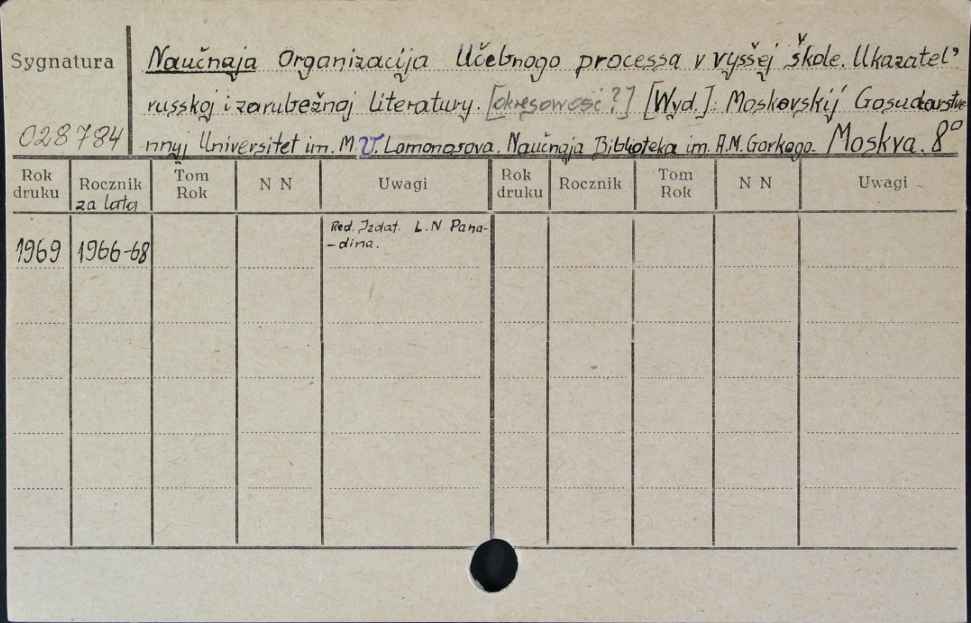 Sygnatura
Naučnaja Organizacija Učebnogo processa v vysšej škole. Ukazatel'
russkoj i zarubežnoj literatury. [okresowość?] [Wyd.]: Moskovskij Gosudarstve-
028784 nnyj Universitet im. M.V. Lomonosova. Naučnaja Biblioteka im. A.M. Gorkogo. Moskva. 8°
Rok druku Rocznik za lata Tom Rok N N Uwagi Rok druku Rocznik Tom Rok N N Uwagi
1969 1966-68 Red. Izdat. L.N Pana-
-dina.